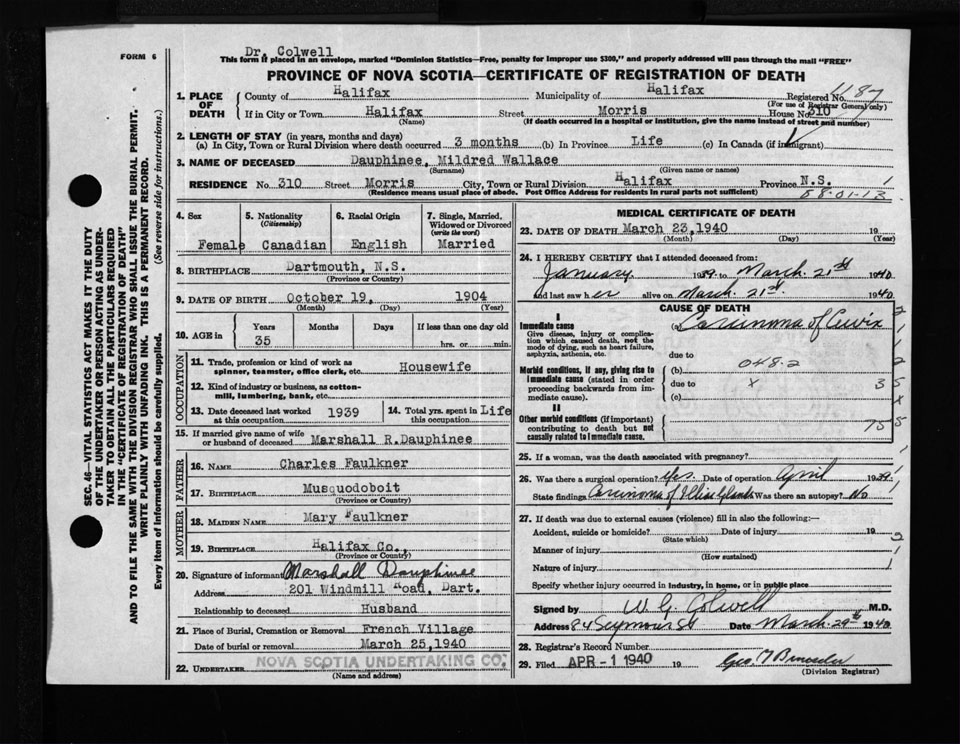 FORM 6
Dr. Colwell
This form if placed in an envelope, marked "Dominion Statistics—Free, penalty for improper use $300," and properly addressed will pass through the mail "FREE"
PROVINCE OF NOVA SCOTIA—CERTIFICATE OF REGISTRATION OF DEATH
1. PLACE OF DEATH
County of Halifax Municipality of Halifax Registered No. 1187
(For use of Registrar General only)
If in City or Town Halifax Street Morris House No. 310
(Name) (If death occurred in a hospital or institution, give the name instead of street and number)
2. LENGTH OF STAY (in years, months and days)
(a) In City, Town or Rural Division where death occurred 3 months (b) In Province Life (c) In Canada (if immigrant)
3. NAME OF DECEASED Dauphinee, Mildred Wallace
(Surname) (Given name or names)
RESIDENCE No. 310 Street Morris City, Town or Rural Division Halifax Province N.S. 1
(Residence means usual place of abode. Post Office Address for residents in rural parts not sufficient) 58-01-13
4. Sex
Female
5. Nationality
(Citizenship)
Canadian
6. Racial Origin
English
7. Single, Married, Widowed or Divorced
(write the word)
Married
8. BIRTHPLACE Dartmouth, N.S.
(Province or Country)
9. DATE OF BIRTH October 19, 1904
(Month) (Day) (Year)
10. AGE in
Years Months Days If less than one day old
35 hrs. or min.
OCCUPATION
11. Trade, profession or kind of work as
spinner, teamster, office clerk, etc. Housewife
12. Kind of industry or business, as cotton-
mill, lumbering, bank, etc.
13. Date deceased last worked
at this occupation 1939
14. Total yrs. spent in
this occupation Life
15. If married give name of wife
or husband of deceased Marshall R. Dauphinee
FATHER
16. NAME Charles Faulkner
17. BIRTHPLACE Musquodoboit
(Province or Country)
MOTHER
18. MAIDEN NAME Mary Faulkner
19. BIRTHPLACE Halifax Co.,
(Province or Country)
20. Signature of informant Marshall Dauphinee
Address 201 Windmill Road, Dart.
Relationship to deceased Husband
21. Place of Burial, Cremation or Removal French Village
Date of burial or removal March 25, 1940
22. UNDERTAKER NOVA SCOTIA UNDERTAKING CO.
(Name and address)
MEDICAL CERTIFICATE OF DEATH
23. DATE OF DEATH March 23, 1940 19
(Month) (Day) (Year)
24. I HEREBY CERTIFY that I attended deceased from:
January 1939 to March 21st 1940
and last saw her alive on March 21st 1940
CAUSE OF DEATH
I
Immediate cause
Give disease, injury or complication which caused death, not the mode of dying, such as heart failure, asphyxia, asthenia, etc.
(a) Carcinoma of Cervix
due to
Morbid conditions, if any, giving rise to immediate cause (stated in order proceeding backwards from immediate cause).
(b) 048.2
due to x
(c)
II
Other morbid conditions (if important) contributing to death but not causally related to immediate cause.
25. If a woman, was the death associated with pregnancy?
26. Was there a surgical operation? Yes. Date of operation April 1939
State findings Carcinoma of Iliac Glands Was there an autopsy? No
27. If death was due to external causes (violence) fill in also the following:—
Accident, suicide or homicide? Date of injury 19
(State which)
Manner of injury
(How sustained)
Nature of injury
Specify whether injury occurred in industry, in home, or in public place
Signed by W. G. Colwell M.D.
Address 84 Seymour St Date March 29th 1940
28. Registrar's Record Number
29. Filed APR - 1 1940 19
(Division Registrar)
SEC. 46—VITAL STATISTICS ACT MAKES IT THE DUTY
OF THE UNDERTAKER OR PERSON ACTING AS UNDER-
TAKER TO OBTAIN ALL THE PARTICULARS REQUIRED
IN THE "CERTIFICATE OF REGISTRATION OF DEATH"
AND TO FILE THE SAME WITH THE DIVISION REGISTRAR WHO SHALL ISSUE THE BURIAL PERMIT.
WRITE PLAINLY WITH UNFADING INK. THIS IS A PERMANENT RECORD.
Every item of information should be carefully supplied. (See reverse side for instructions.)